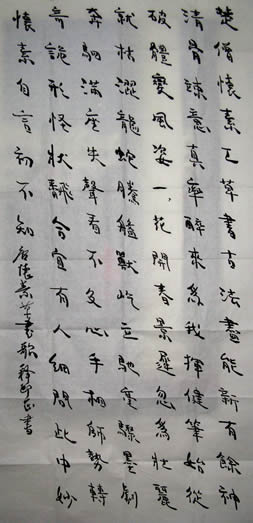 楚僧懷素工草書古法盡能新有餘神
清骨竦意真率醉來為我揮健筆始從
破體變風姿一、花開春景遲忽為壯麗
就枯澀龍蛇騰盤獸屹立馳毫驟墨劇
奔駟滿座失聲看不及心手相師勢轉
奇詭形怪狀翻合宜有人細問此中妙
懷素自言初不知 唐懷素草書歌 書